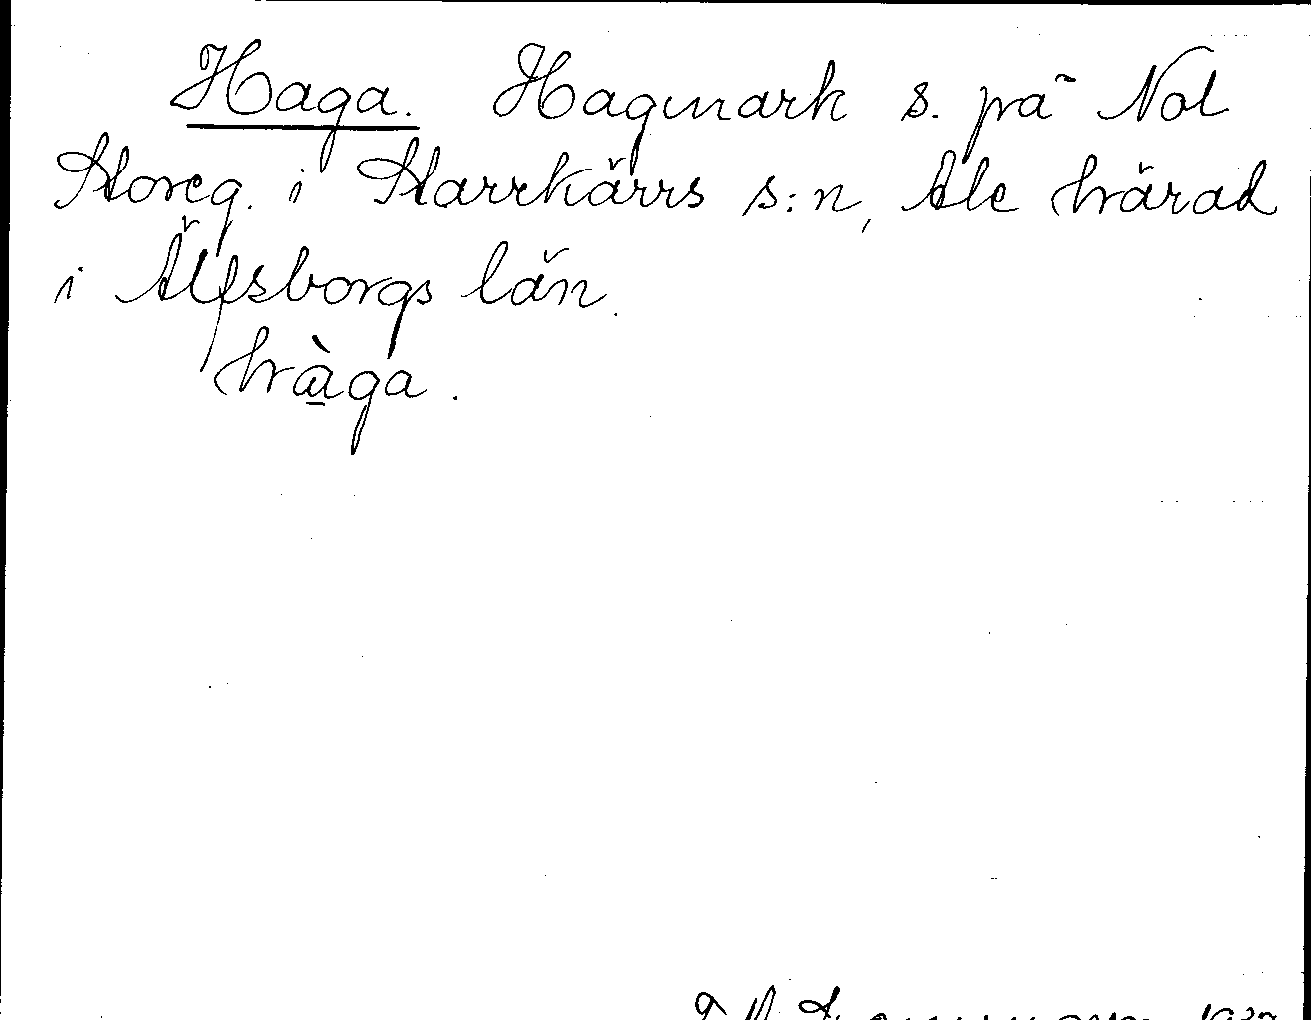 Haga. Hagmark s. på Nol
Storeg. i Starrkärrs s:n, Ale härad
i Älfsborgs län.
hàga.